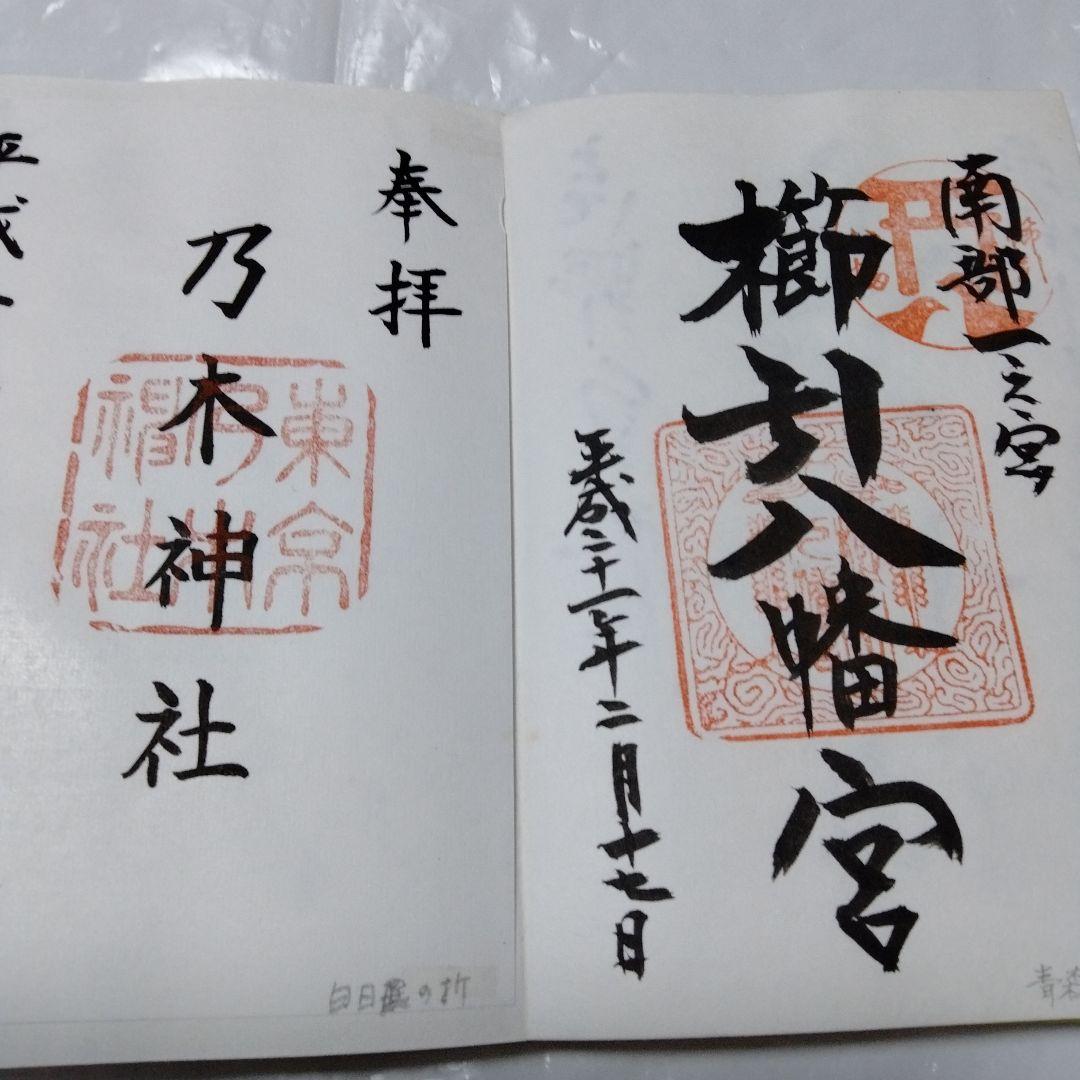 南部一之宮
櫛引八幡宮
平成二十一年二月十七日
青森
奉拝
乃木神社
東京乃木神社
平成